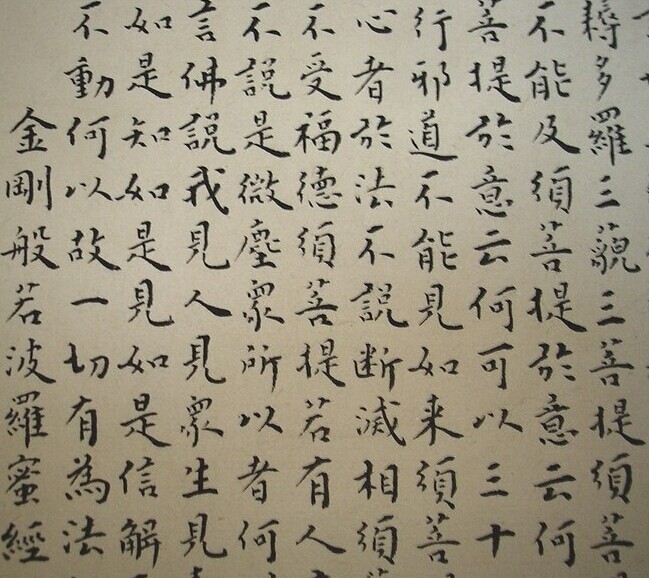 耨多羅三藐三菩提須菩
不能及須菩提於意云何
菩提於意云何可以三十
行邪道不能見如来須菩
心者於法不說断滅相須
不受福德須菩提若有人
不說是微塵眾所以者何
言佛說我見人見眾生見
如是知如是見如是信解
不動何以故一切有為法
金剛般若波羅蜜經